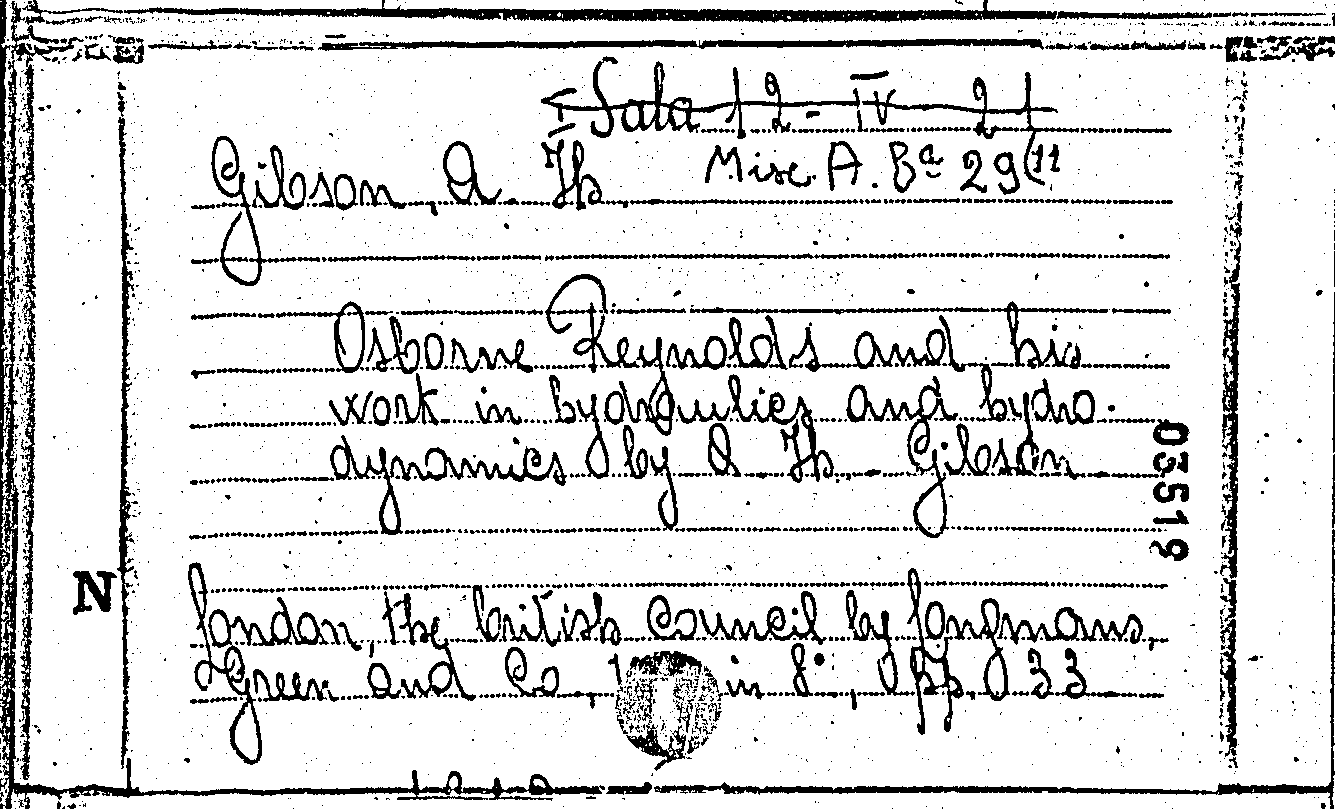 Sala 12 - IV 21
Gibson, A. H. Misc. A. Ba 29(11
Osborne Reynolds and his
work in hydraulics and hydro-
dynamics by A. H. Gibson
03519
N
London, the british Council by Longmans,
Green and Co., in 8°, pp. 33